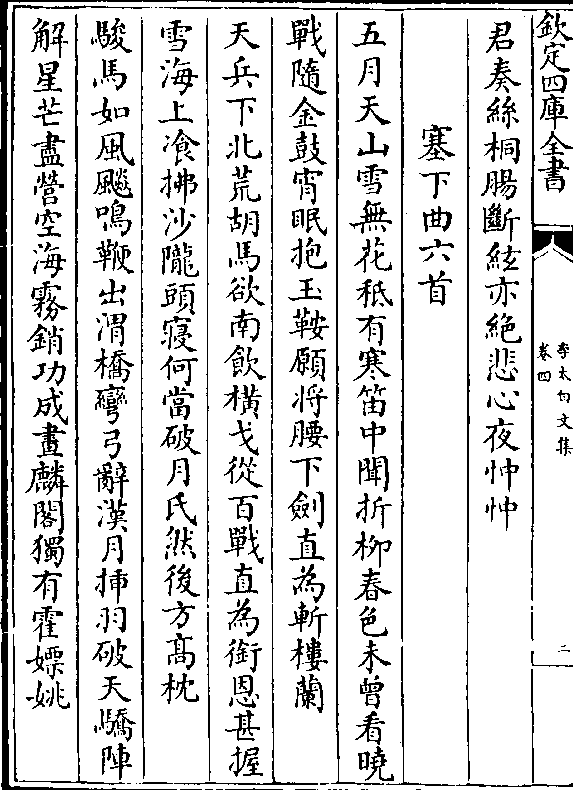 欽定四庫全書
李太白文集
卷四
二
君奏絲桐腸斷絃亦絶悲心夜忡忡
塞下曲六首
五月天山雪無花秪有寒笛中聞折柳春色未曾看曉
戰隨金鼓宵眠抱玉鞍願将腰下劍直為斬樓蘭
天兵下北荒胡馬欲南飲横戈從百戰直為銜恩甚握
雪海上飡拂沙隴頭寝何當破月氏然後方髙枕
駿馬如風飈鳴鞭出渭橋彎弓辭漢月挿羽破天驕陣
解星芒盡營空海霧銷功成畫麟閣獨有霍嫖姚